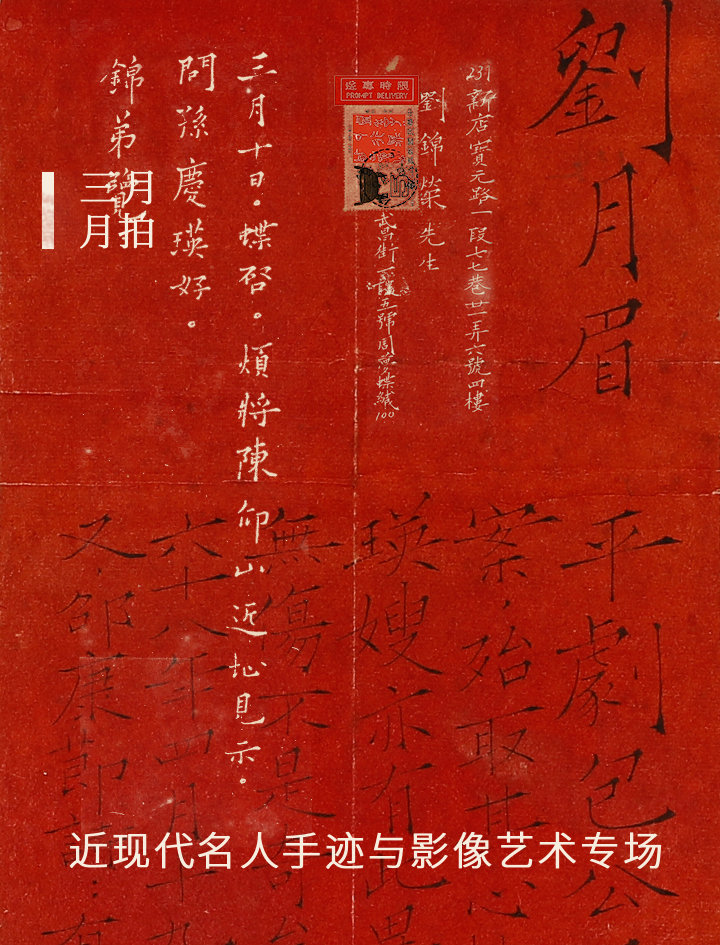 劉月眉
231 新店寶元路一段七七巷廿一弄六號四樓
劉錦榮先生
限時專送
PROMPT DELIVERY
武昌街
五號周夢蝶緘
100
三月十日。蝶启。煩將陳仰山近址見示。
問孫慶瑛好。
錦弟覽
三月
月拍
平劇包公
案，殆取其心
瑛嫂亦有此
無傷不是
六十八年四月十九
又：邵康節
近现代名人手迹与影像艺术专场